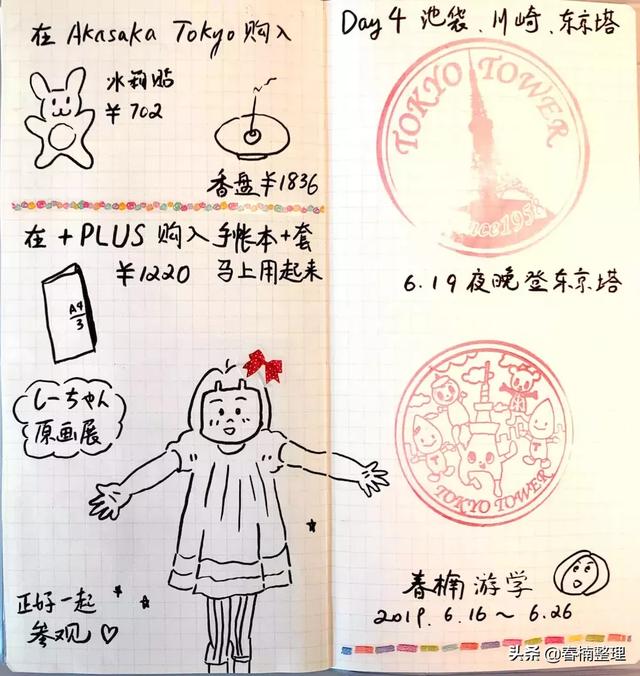 在 Akasaka Tokyo 购入
冰箱贴
￥702
香盘￥1836
在 +PLUS 购入 手帐本+套
￥1220 马上用起来
A4
3
しーちゃん
原画展
正好一起
参观♡
Day 4 池袋、川崎、东京塔
TOKYO TOWER
Since 1958
6.19 夜晚登东京塔
TOKYO TOWER
春楠 游学
2019. 6.16 ~ 6.26
头条 @春楠整理